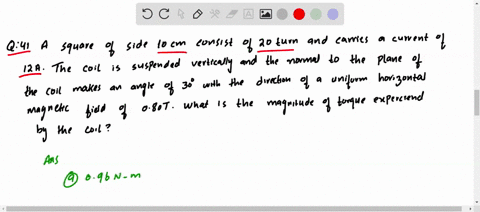 Q:41 A square of side 10 cm consist of 20 turn and carries a current of
12A. The coil is suspended vertically and the normal to the plane of
the coil makes an angle of 30° with the direction of a uniform horizontal
magnetic field of 0.80T. What is the magnitude of torque experciend
by the coil?
Ans
(a) 0.96 N-m